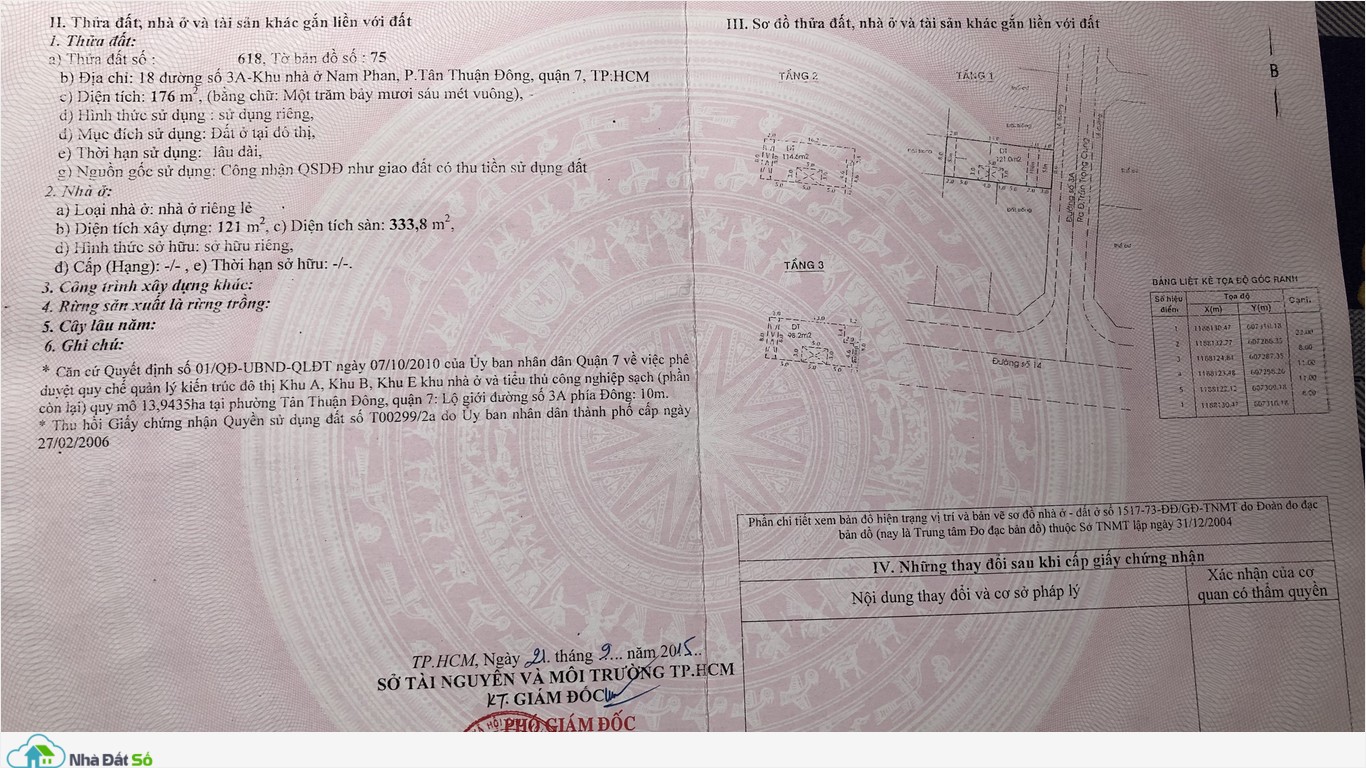 II. Thửa đất, nhà ở và tài sản khác gắn liền với đất
1. Thửa đất:
a) Thửa đất số : 618, Tờ bản đồ số : 75
b) Địa chỉ: 18 đường số 3A-Khu nhà ở Nam Phan, P.Tân Thuận Đông, quận 7, TP.HCM
c) Diện tích: 176 m², (bằng chữ: Một trăm bảy mươi sáu mét vuông), -
d) Hình thức sử dụng : sử dụng riêng,
đ) Mục đích sử dụng: Đất ở tại đô thị,
e) Thời hạn sử dụng: lâu dài,
g) Nguồn gốc sử dụng: Công nhận QSDĐ như giao đất có thu tiền sử dụng đất
2. Nhà ở:
a) Loại nhà ở: nhà ở riêng lẻ
b) Diện tích xây dựng: 121 m², c) Diện tích sàn: 333,8 m²,
d) Hình thức sở hữu: sở hữu riêng,
đ) Cấp (Hạng): -/- , e) Thời hạn sở hữu: -/-.
3. Công trình xây dựng khác:
4. Rừng sản xuất là rừng trồng:
5. Cây lâu năm:
6. Ghi chú:
* Căn cứ Quyết định số 01/QĐ-UBND-QLĐT ngày 07/10/2010 của Ủy ban nhân dân Quận 7 về việc phê
duyệt quy chế quản lý kiến trúc đô thị Khu A, Khu B, Khu E khu nhà ở và tiểu thủ công nghiệp sạch (phần
còn lại) quy mô 13,9435ha tại phường Tân Thuận Đông, quận 7: Lộ giới đường số 3A phía Đông: 10m.
* Thu hồi Giấy chứng nhận Quyền sử dụng đất số T00299/2a do Ủy ban nhân dân thành phố cấp ngày
27/02/2006
TP.HCM, Ngày 21. tháng 9... năm 2015..
SỞ TÀI NGUYÊN VÀ MÔI TRƯỜNG TP.HCM
KT. GIÁM ĐỐC
PHÓ GIÁM ĐỐC
III. Sơ đồ thửa đất, nhà ở và tài sản khác gắn liền với đất
B
TẦNG 2
TẦNG 1
DT
114.6m2
DT
121.0m2
Đất trống
Đường số 3A
Ra Đ.Trần Trọng Cung
Lề đường
TẦNG 3
DT
98.2m2
Đường số 14
BẢNG LIỆT KÊ TỌA ĐỘ GÓC RANH
Số hiệu điểm Tọa độ Cạnh
X(m) Y(m)
Phần chi tiết xem bản đồ hiện trạng vị trí và bản vẽ sơ đồ nhà ở - đất ở số 1517-73-ĐĐ/GĐ-TNMT do Đoàn đo đạc
bản đồ (nay là Trung tâm Đo đạc bản đồ) thuộc Sở TNMT lập ngày 31/12/2004
IV. Những thay đổi sau khi cấp giấy chứng nhận
Nội dung thay đổi và cơ sở pháp lý
Xác nhận của cơ
quan có thẩm quyền
Nhà Đất Số